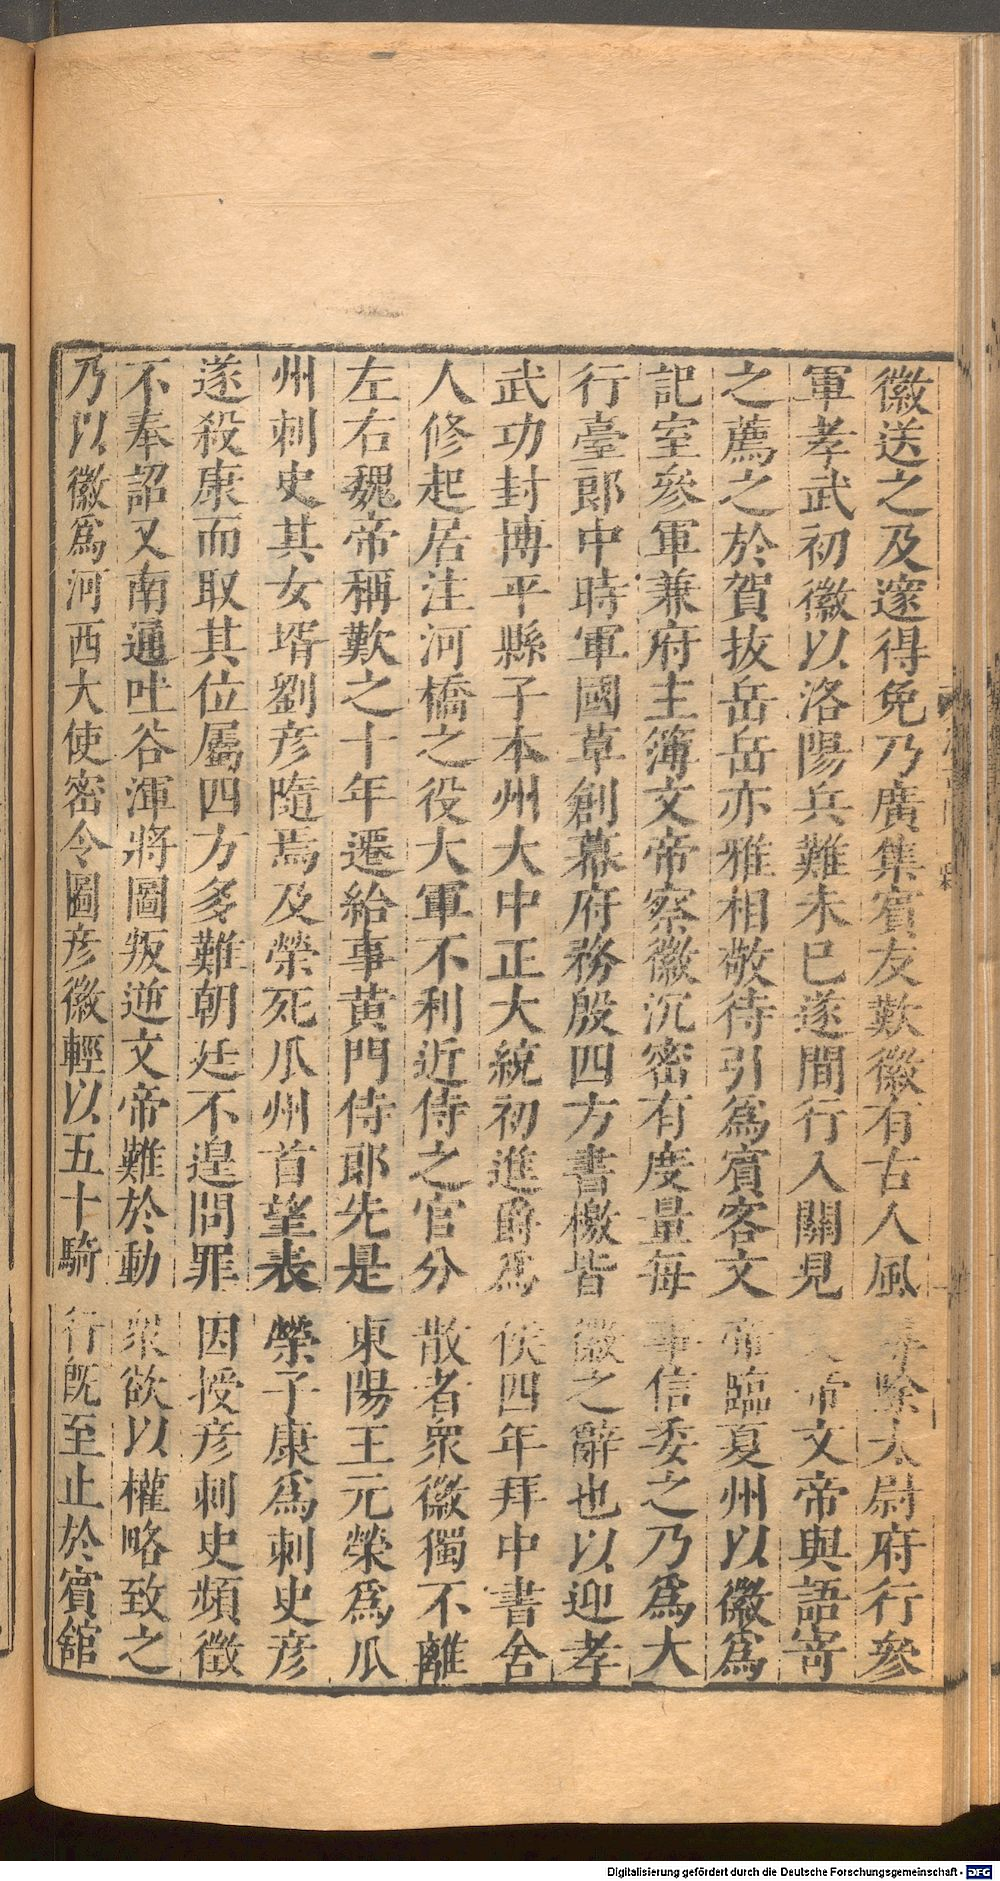 徽送之及邃得免乃廣集賓友歎徽有古人風尋除太尉府行參
軍孝武初徽以洛陽兵難未已遂間行入關見文帝文帝與語寄
之薦之於賀拔岳岳亦雅相敬待引爲賓客文帝臨夏州以徽爲
記室參軍兼府主簿文帝察徽沉密有度量每事信委之乃爲大
行臺郎中時軍國草創幕府務殷四方書檄皆徽之辭也以迎孝
武功封博平縣子本州大中正大統初進爵爲侯四年拜中書舍
人修起居注河橋之役大軍不利近侍之官分散者衆徽獨不離
左右魏帝稱歎之十年遷給事黃門侍郎先是東陽王元榮爲瓜
州刺史其女壻劉彦隨焉及榮死瓜州首望表榮子康爲刺史彦
遂殺康而取其位屬四方多難朝廷不遑問罪因授彦刺史頻徵
不奉詔又南通吐谷渾將圖叛逆文帝難於動衆欲以權略致之
乃以徽爲河西大使密令圖彦徽輕以五十騎行旣至止於賓舘
Digitalisierung gefördert durch die Deutsche Forschungsgemeinschaft - DFG